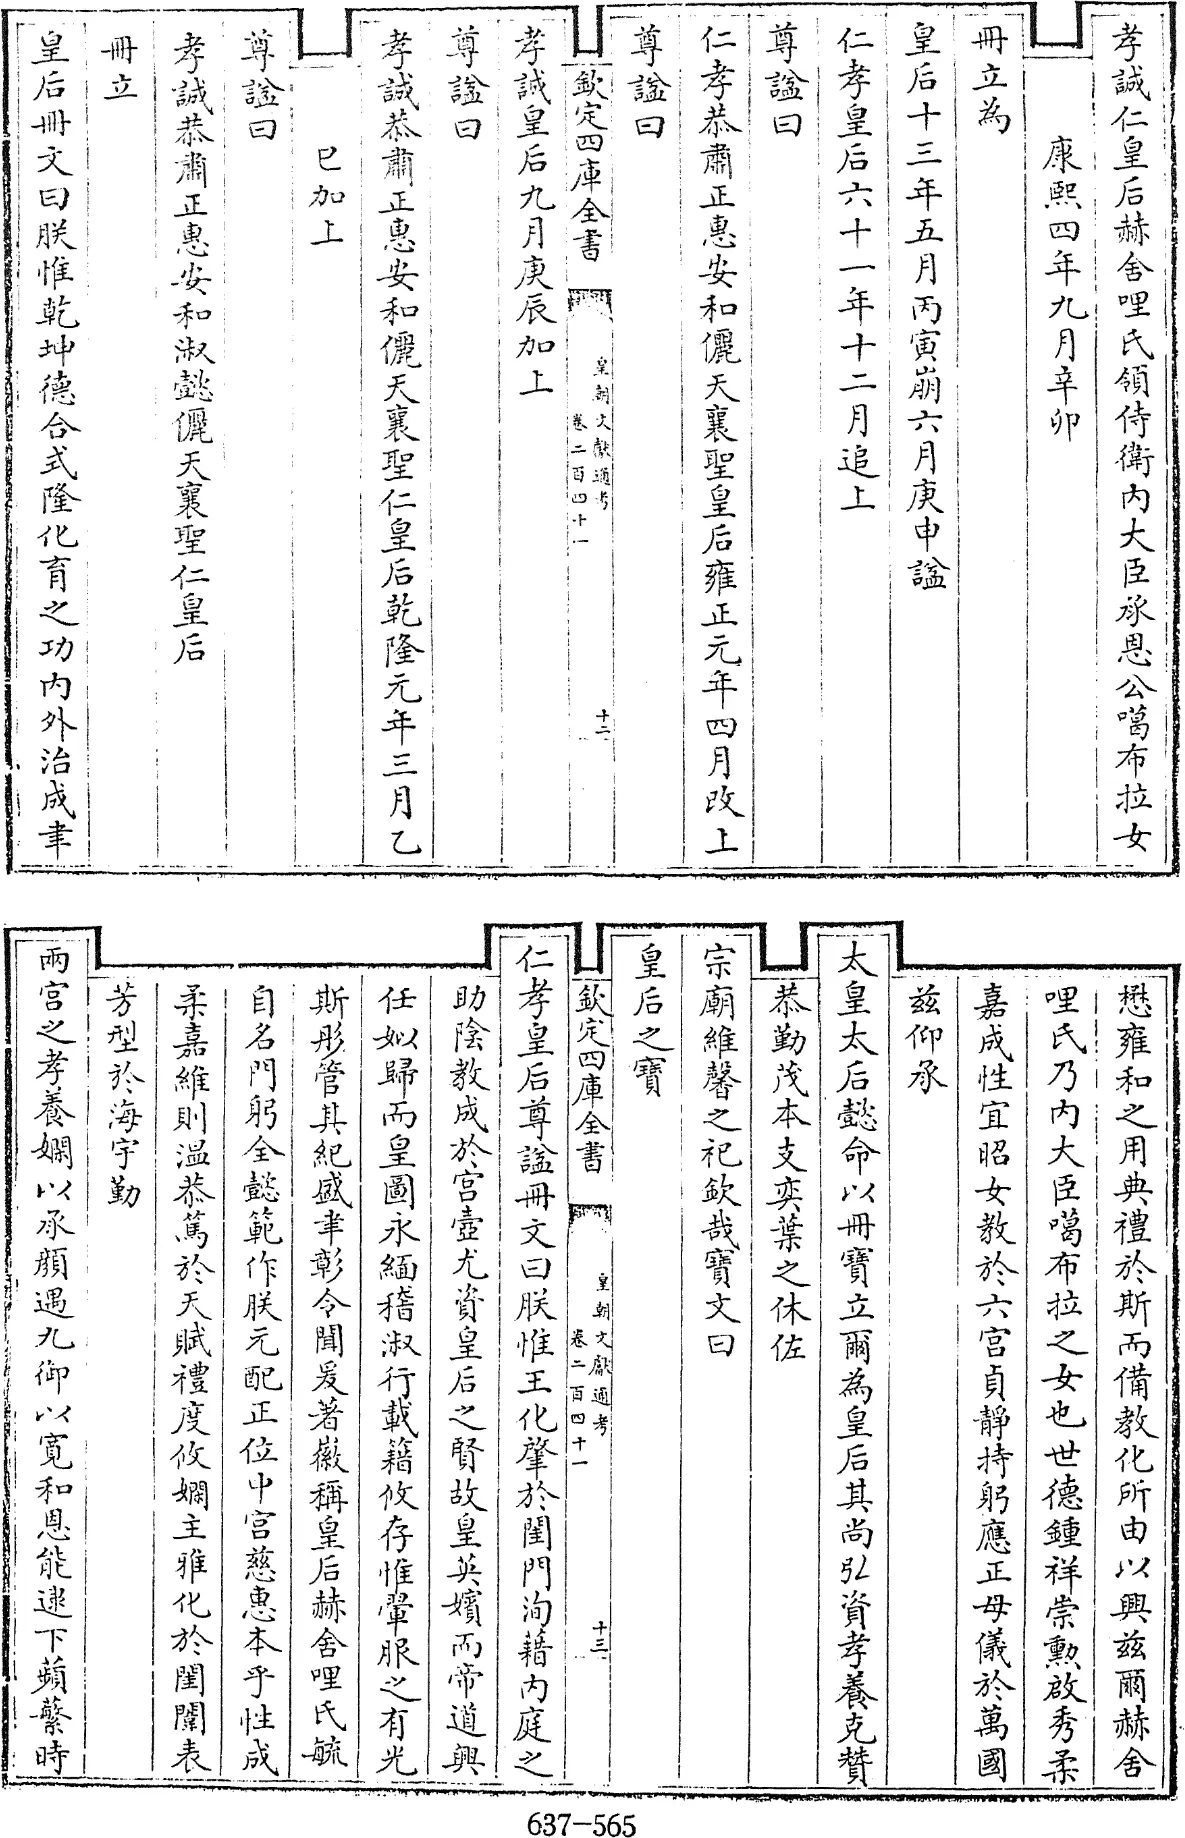 孝誠仁皇后赫舍哩氏領侍衛内大臣承恩公噶布拉女
康熙四年九月辛卯
冊立為
皇后十三年五月丙寅崩六月庚申諡
仁孝皇后六十一年十二月追上
尊諡曰
仁孝恭肅正惠安和儷天襄聖皇后雍正元年四月改上
尊諡曰
欽定四庫全書
皇朝文獻通考
卷二百四十一
十二
孝誠皇后九月庚辰加上
尊諡曰
孝誠恭肅正惠安和儷天襄聖仁皇后乾隆元年三月乙
巳加上
尊諡曰
孝誠恭肅正惠安和淑懿儷天襄聖仁皇后
冊立
皇后冊文曰朕惟乾坤德合式隆化育之功内外治成聿
懋雍和之用典禮於斯而備教化所由以興兹爾赫舍
哩氏乃内大臣噶布拉之女也世德鍾祥崇勲啟秀柔
嘉成性宜昭女教於六宫貞靜持躬應正母儀於萬國
兹仰承
太皇太后懿命以冊寶立爾為皇后其尚弘資孝養克贊
恭勤茂本支奕葉之休佐
宗廟維馨之祀欽哉寶文曰
皇后之寶
欽定四庫全書
皇朝文獻通考
卷二百四十一
十三
仁孝皇后尊諡冊文曰朕惟王化肇於閨門洵藉内庭之
助陰教成於宫壼尤資皇后之賢故皇英嬪而帝道興
任姒歸而皇圖永緬稽淑行載籍攸存惟翬服之有光
斯彤管其紀盛聿彰令聞爰著徽稱皇后赫舍哩氏毓
自名門躬全懿範作朕元配正位中宫慈惠本乎性成
柔嘉維則温恭篤於天賦禮度攸嫻主雅化於閨闈表
芳型於海宇勤
兩宫之孝養嫻以承顔遇九御以寛和恩能逮下蘋蘩時
637-565